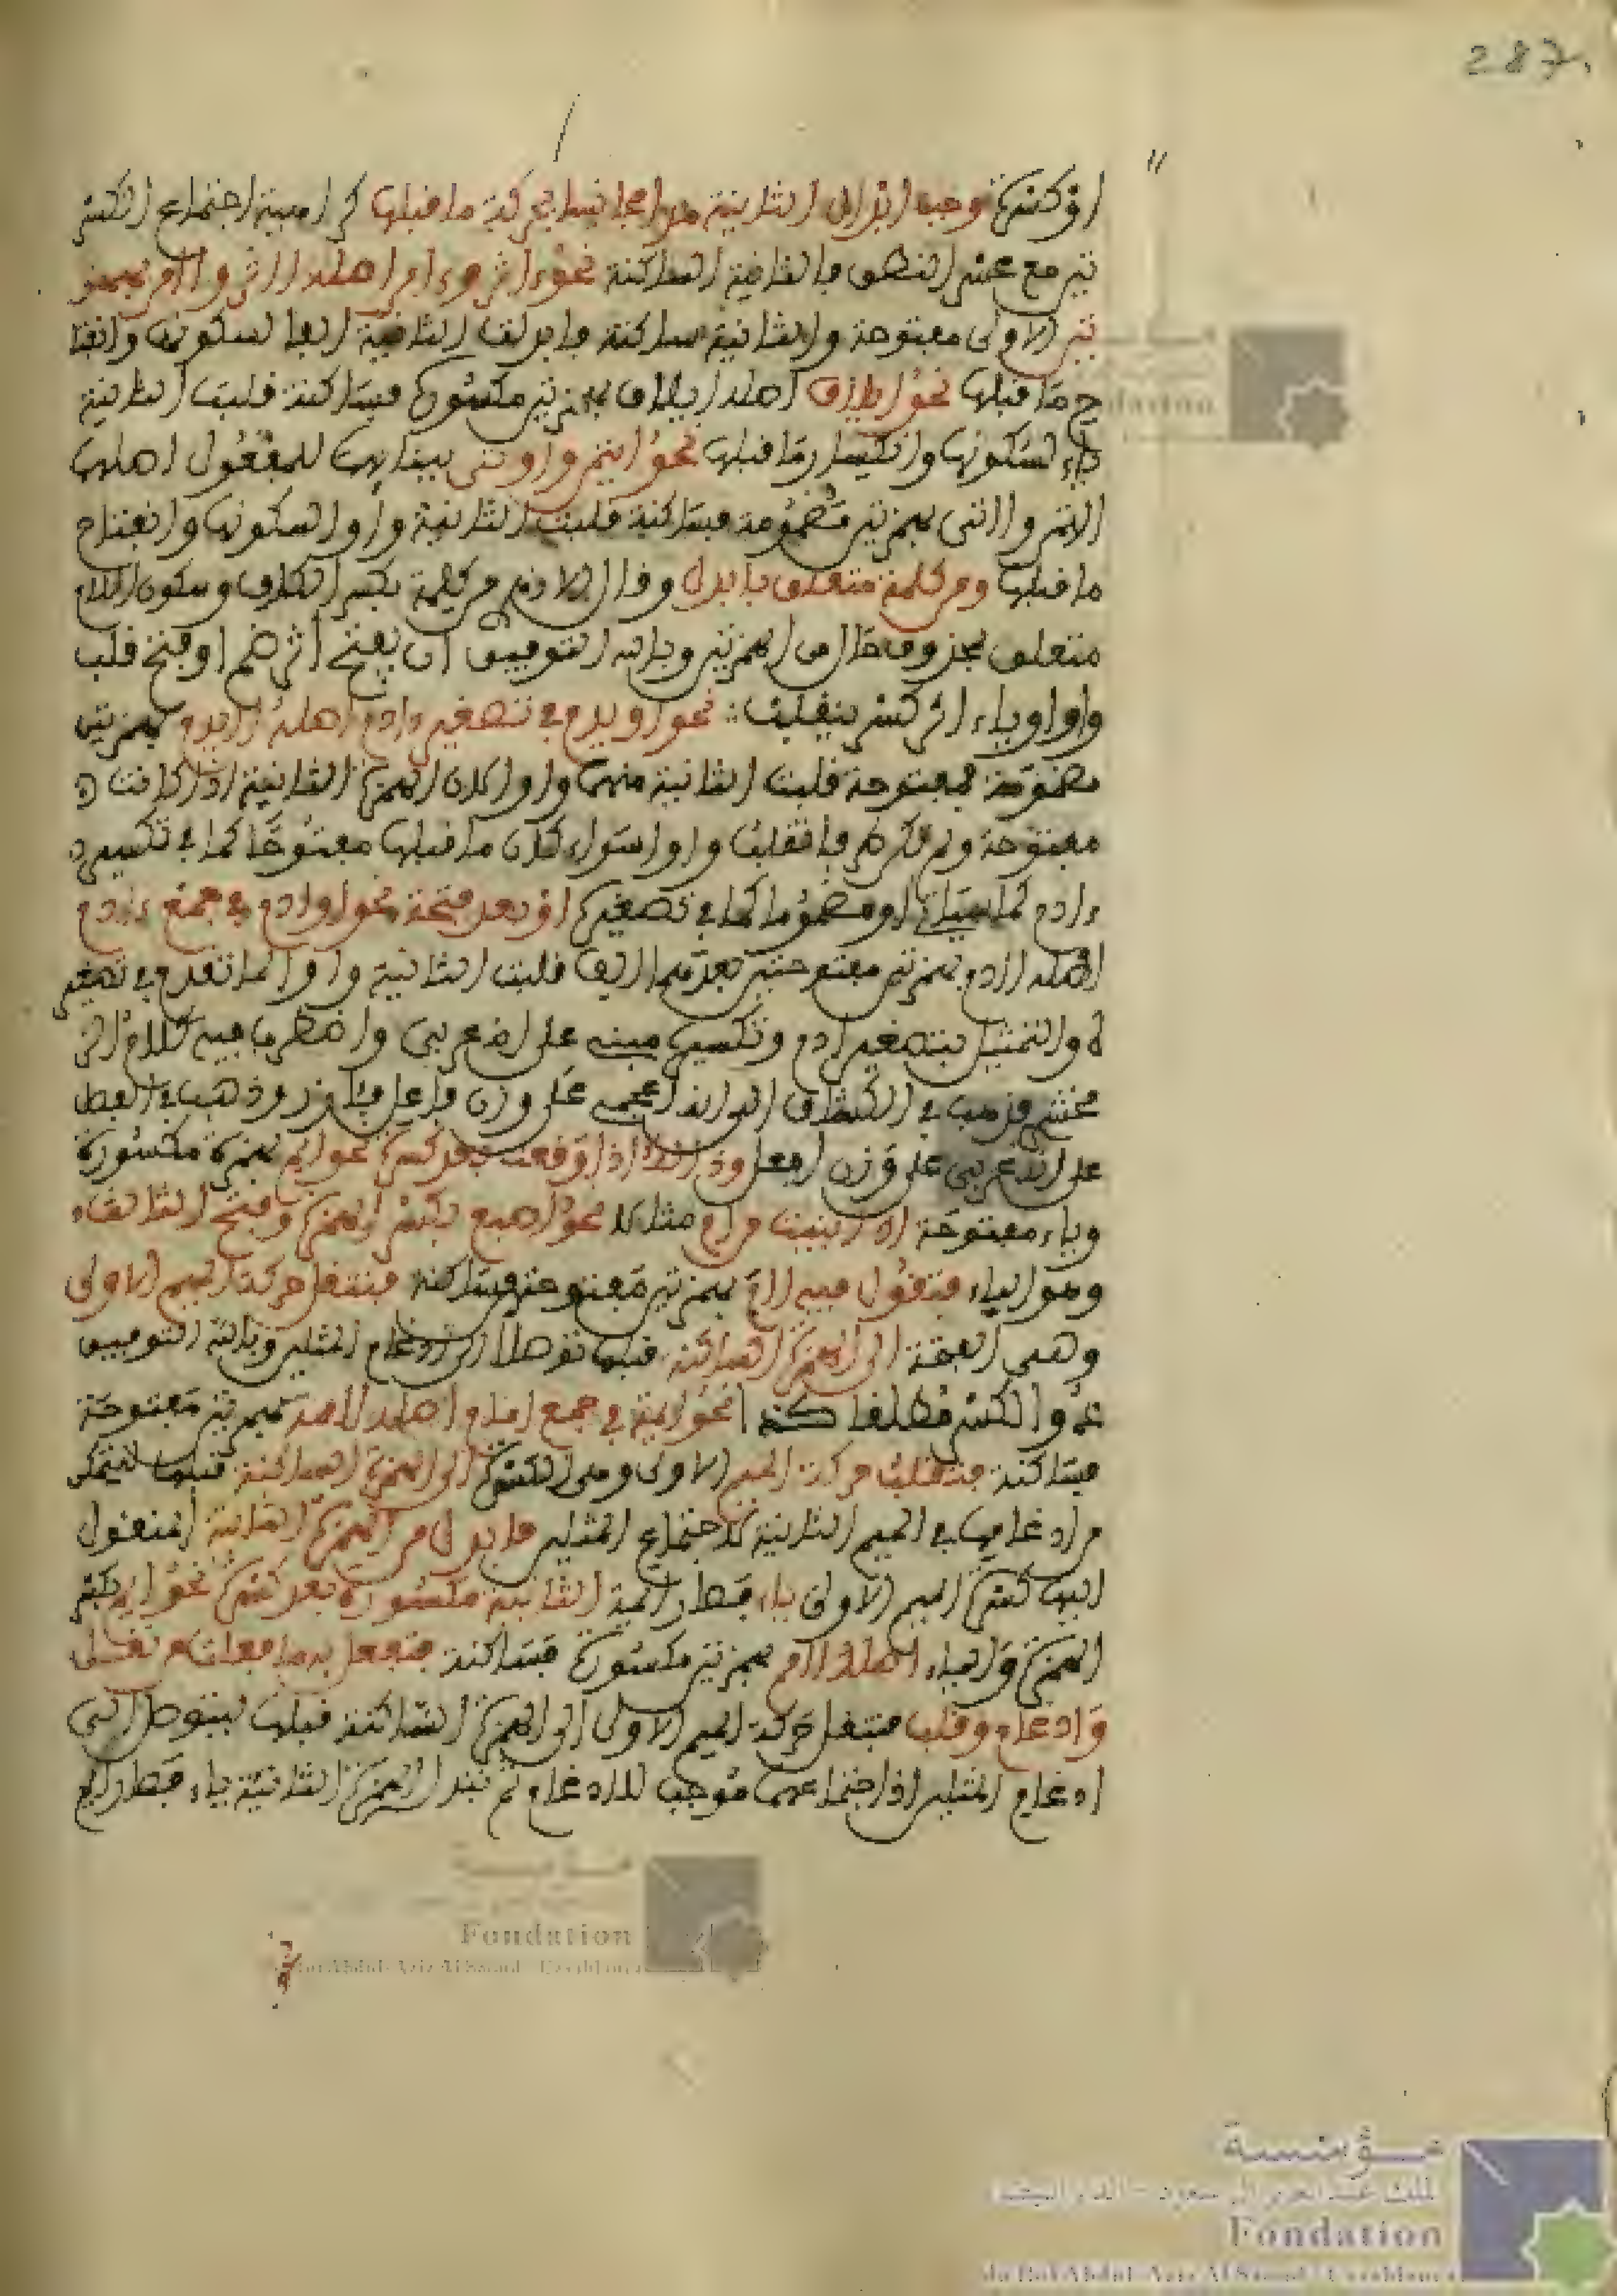 287
او كسرة وجب ابدال الثانية مدا مجانسا لحركة ما قبلها كراهية اجتماع الهمز
تين مع عسر النطق بالثانية الساكنة نحو ءاثر وءادم اصله أأثر وأأدم بهمز
تين الاولى مفتوحة والثانية ساكنة فابدلت الثانية الفا لسكونها وانفتا
ح ما قبلها نحو ايلاف اصله إإلاف بهمزتين مكسورة فساكنة قلبت الثانية
ياء لسكونها وانكسار ما قبلها نحو اوتمن واوتى ببنائهما للمفعول اصلهما
أأتمن وأأتى بهمزتين مضمومة فساكنة قلبت الثانية واوا لسكونها وانفتاح
ما قبلها ومن كلمة متعلق بابدل وقال الازهري من كلمة بكسر الكاف وسكون اللام
متعلق بمحذوف حال من الهمزتين وبالله التوفيق ان يفتح اثر ضم او فتح قلب
واوا وياء اثر كسر ينقلب نحو اويدم في تصغير ءادم اصله أأيدم بهمزتين
مضمومة فمفتوحة قلبت الثانية منهما واوا لان الهمزة الثانية اذا كانت
مفتوحة ولم تكن طرفا تقلب واوا سواء كان ما قبلها مفتوحا كما في تكسير
ءادم كما سياتي او مضموما كما في تصغيره او بعد فتحة نحو اوادم في جمع ءادم
اصله أأادم بهمزتين مفتوحتين بعدهما الف قلبت الثانية واوا لما تقدم في تصغير
ه والتمثيل بتصغير ءادم وتكسيره مبني على انه عربي واضطرب فيه كلام الز
مخشري فذهب في الكشاف الى انه اعجمي على وزن فاعل وذهب في المفصل
على انه عربي على وزن افعل وذا اذا وقعت بعد كسرة نحو ايم بهمزة مكسورة
وياء مفتوحة اذا بنيت من ام مثال نحو اصبع بكسر الهمزة وفتح الثالث
وهو الياء فتقول فيه إأمم بهمزتين فساكنة فتنقل حركة الميم الاولى
وهي الفتحة الى الهمزة الساكنة قبلها توصلا الى ادغام المثلين وبالله التوفيق
ذو الكسر مطلقا كذا نحو ايمة في جمع امام اصله أأممة بهمزتين مفتوحة
فساكنة فنقلت حركة الميم الاولى وهي الكسرة الى الهمزة الساكنة قبلها ليتمكن
من ادغامها في الميم الثانية لاجتماع المثلين فابدل من الهمزة الثانية المنقول
اليها كسرة الميم الاولى ياء فصار ايمة الثانية مكسورة بعد كسرة نحو ايم بكسر
الهمزة والياء اصله إئمم بهمزتين مكسورة فساكنة فتفعل به ما فعلت من نقل
وادغام وقلب فتنقل حركة الميم الاولى الى الهمزة الساكنة قبلها ليتوصل الى
ادغام المثلين اذا اجتماعهما موجب للادغام ثم تبدل الهمزة الثانية ياء فصار ايم
نحو
مؤسسة
الملك عبد العزيز آل سعود - الدار البيضاء
Fondation
du Roi Abdul-Aziz Al Saoud - Casablanca